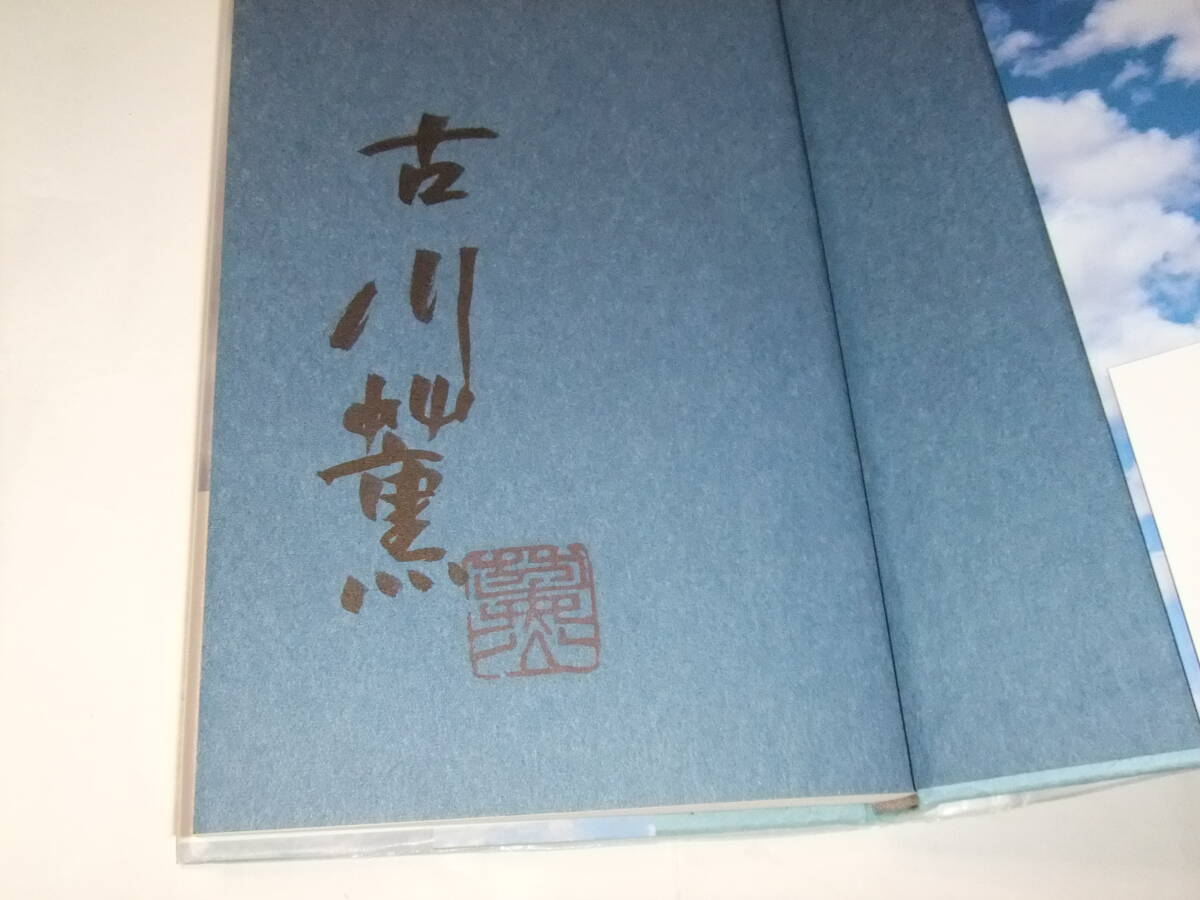 古川薫